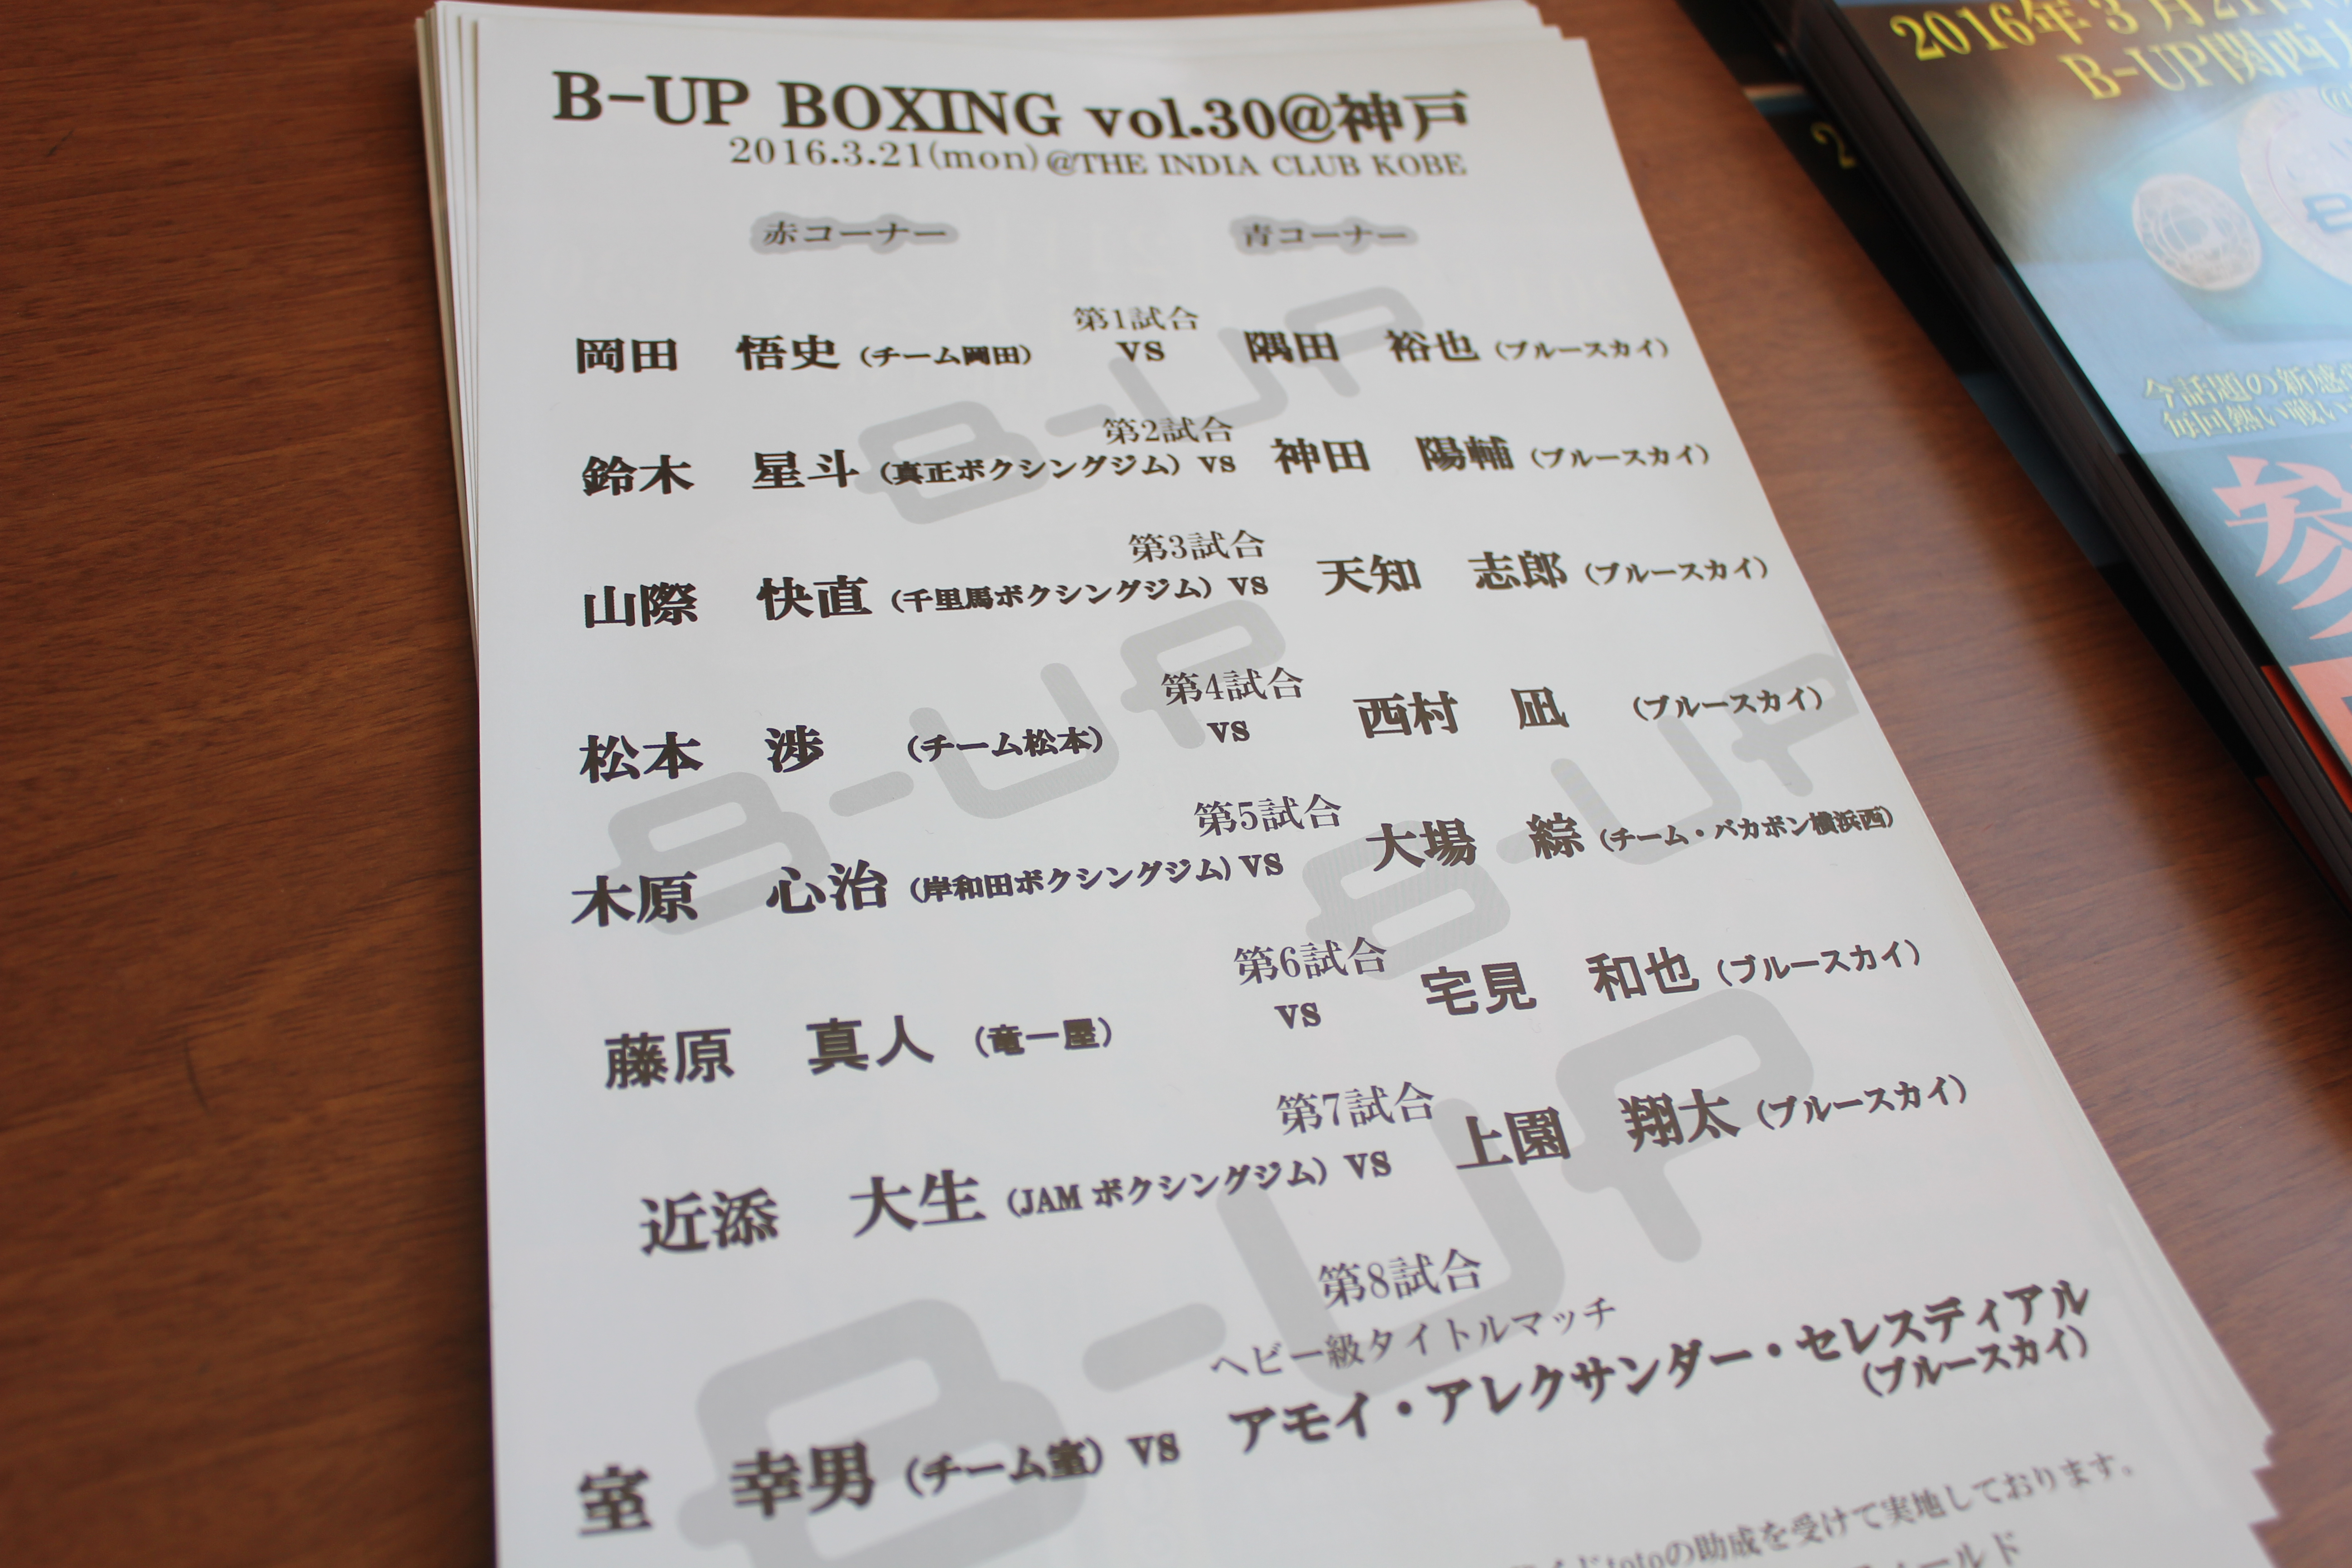 B-UP BOXING vol.30@神戸
2016.3.21(mon)@THE INDIA CLUB KOBE
赤コーナー 青コーナー
第1試合
岡田 悟史 (チーム岡田) VS 隅田 裕也 (ブルースカイ)
第2試合
鈴木 星斗 (真正ボクシングジム) VS 神田 陽輔 (ブルースカイ)
第3試合
山際 快直 (千里馬ボクシングジム) VS 天知 志郎 (ブルースカイ)
第4試合
松本 渉 (チーム松本) VS 西村 凪 (ブルースカイ)
第5試合
木原 心治 (岸和田ボクシングジム) VS 大場 綜 (チーム・バカボン横浜西)
第6試合
藤原 真人 (竜一屋) VS 宅見 和也 (ブルースカイ)
第7試合
近添 大生 (JAM ボクシングジム) VS 上園 翔太 (ブルースカイ)
第8試合
ヘビー級タイトルマッチ
室 幸男 (チーム室) VS アモイ・アレクサンダー・セレスディアル
(ブルースカイ)
totoの助成を受けて実地しております。
B-UP
B-UP
B-UP
B-UP
2016年3月21日
B-UP関西
今話題の新感
毎回熱い戦い
参